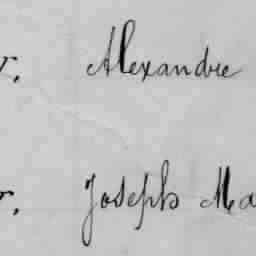 r. Alexandre
r. Joseph Ma